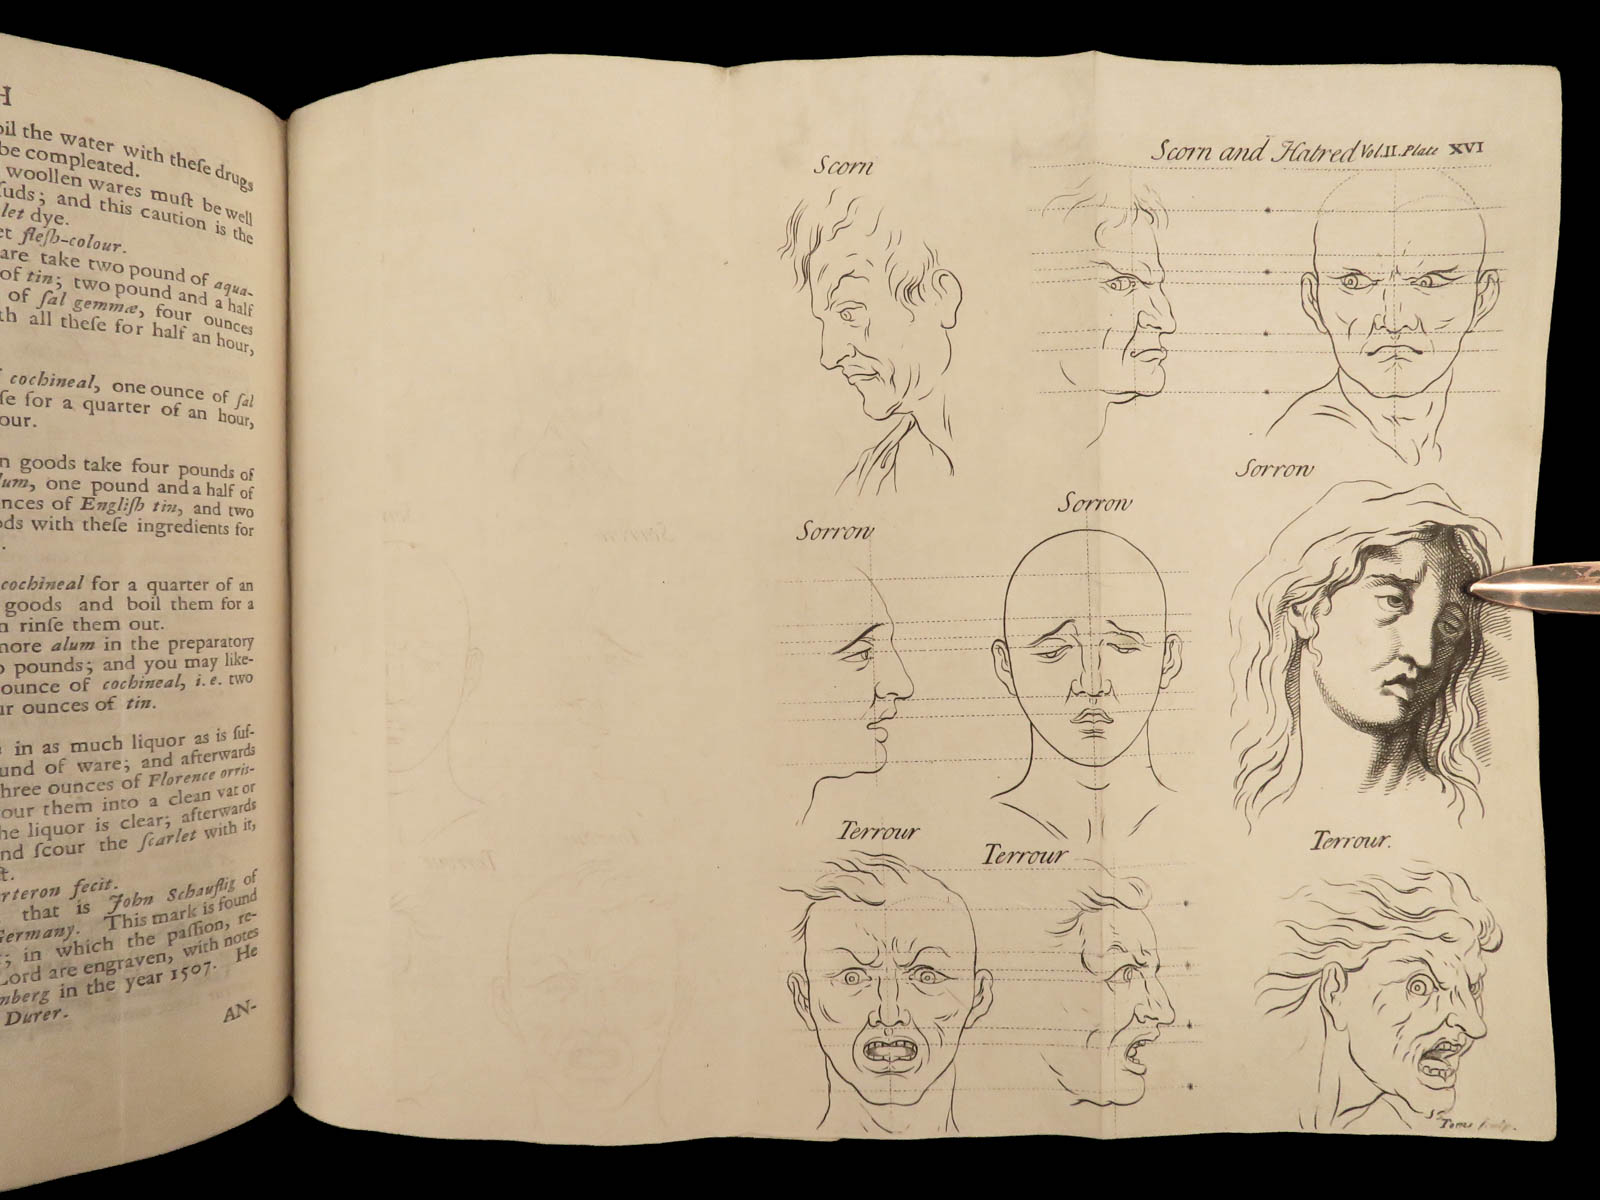 H
oil the water with theſe drugs
be compleated.
woollen wares muſt be well
ſuds; and this caution is the
let dye.
et fleſh-colour.
are take two pound of aqua-
of tin; two pound and a half
of ſal gemmæ, four ounces
th all theſe for half an hour,
cochineal, one ounce of ſal
ſe for a quarter of an hour,
our.
n goods take four pounds of
lum, one pound and a half of
nces of Engliſh tin, and two
ods with theſe ingredients for
cochineal for a quarter of an
goods and boil them for a
n rinſe them out.
more alum in the preparatory
o pounds; and you may like-
ounce of cochineal, i. e. two
ur ounces of tin.
in as much liquor as is ſuf-
und of ware; and afterwards
three ounces of Florence orris-
our them into a clean vat or
he liquor is clear; afterwards
nd ſcour the ſcarlet with it,
t.
rteron fecit.
that is John Schauflig of
Germany. This mark is found
; in which the paſſion, re-
Lord are engraven, with notes
mberg in the year 1507. He
Durer.
AN-
Scorn
Scorn and Hatred Vol. II. Plate XVI
Sorrow
Sorrow
Sorrow
Terrour
Terrour
Terrour.
Toms sculp.